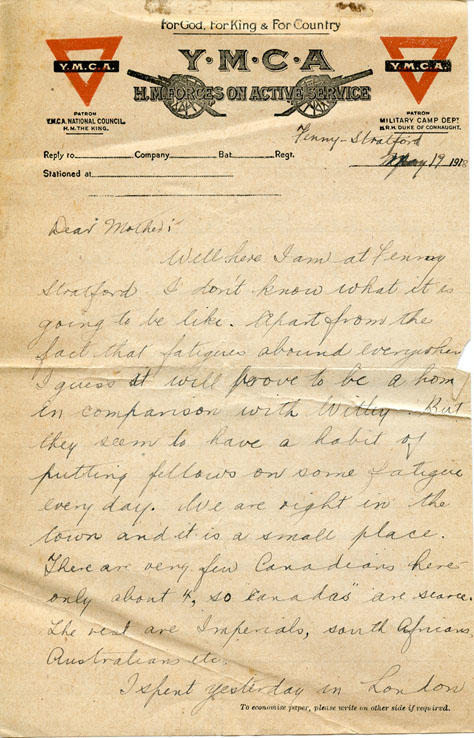 For God, For King & For Country
Y·M·C·A
H.M. FORCES ON ACTIVE SERVICE
Y.M.C.A.
PATRON
Y.M.C.A. NATIONAL COUNCIL.
H.M. THE KING.
Y.M.C.A.
PATRON
MILITARY CAMP DEPT
H.R.H. DUKE OF CONNAUGHT.
Fenny-Stratford
Reply to Company Bat Regt.
May 19 1918
Stationed at
Dear Mother:
Well here I am at Fenny
Stratford I don't know what it is
going to be like. Apart from the
fact that fatigues abound everywher
I guess it will proove to be a hom
in comparison with Witley. But
they seem to have a habit of
putting fellows on some fatigue
every day. We are right in the
town and it is a small place.
There are very few Canadians here
only about 4, so "Canadas" are scarce.
The rest are Imperials, south Africans,
Australians etc.
I spent yesterday in London
To economise paper, please write on other side if required.